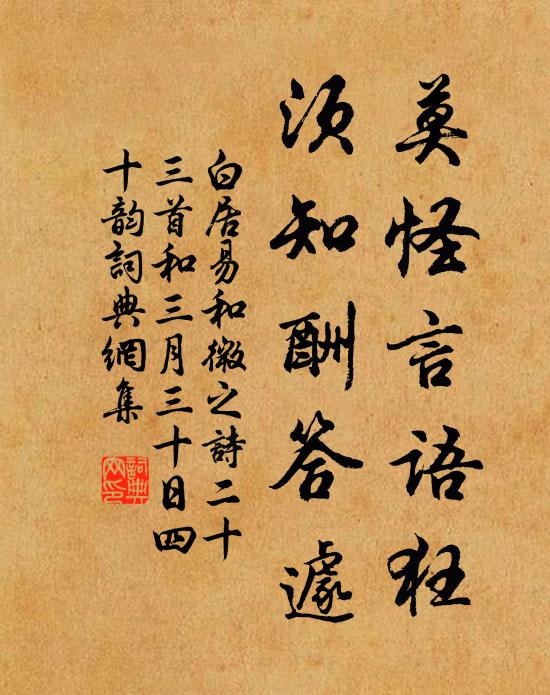 莫怪言語狂
須知酬答遽
白居易和微之詩二十
三首和三月三十日四
十韵詞典網集
詞典網印